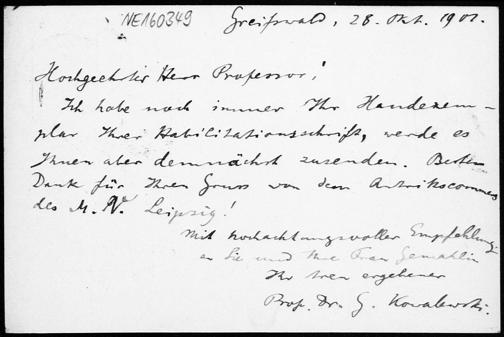 NE160349
Greifswald, 28. Okt. 1901.
Hochgeehrter Herr Professor!
Ich habe noch immer Ihr Handexem-
plar Ihrer Habilitationsschrift, werde es
Ihnen aber demnächst zusenden. Besten
Dank für Ihren Gruss von dem Antrittscommers
des M. V. Leipzig!
Mit hochachtungsvoller Empfehlung
an Sie und Ihre Frau Gemahlin
Ihr treu ergebener
Prof. Dr. G. Kowalewski.